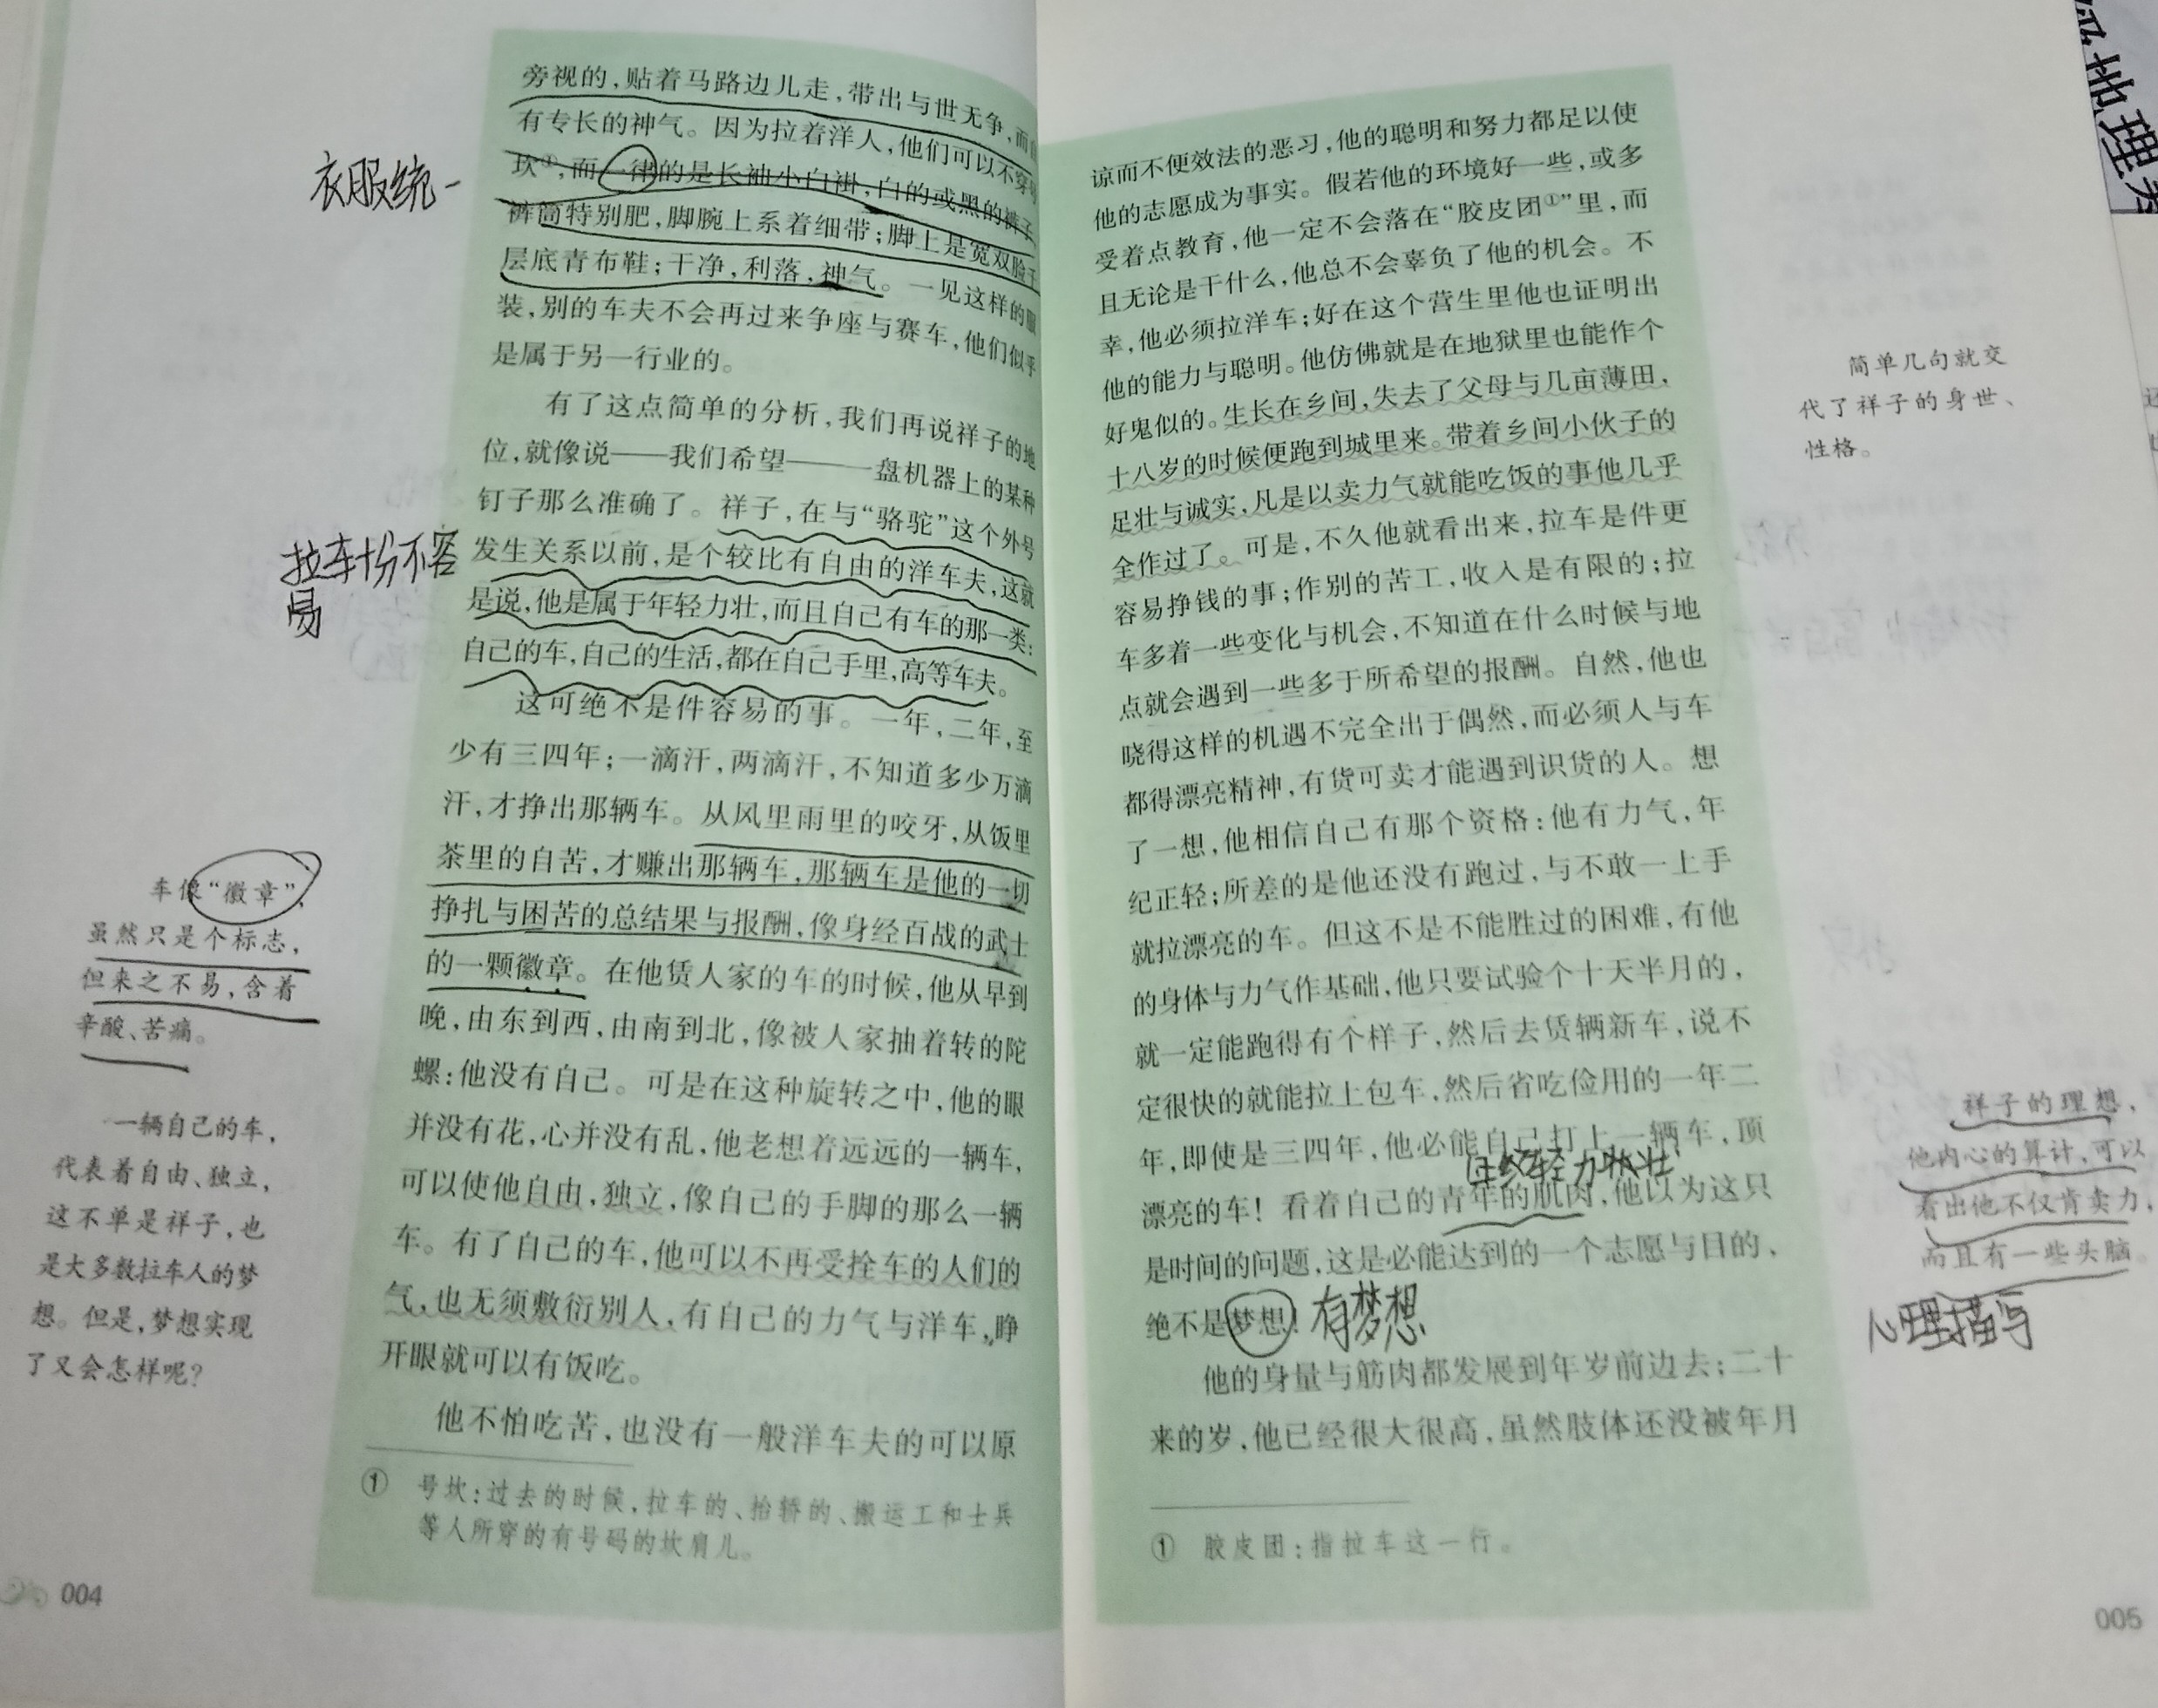 旁视的，贴着马路边儿走，带出与世无争，而自
有专长的神气。因为拉着洋人，他们可以不穿号
坎①，而一律的是长袖小白褂，白的或黑的裤子，
裤筒特别肥，脚腕上系着细带；脚上是宽双脸千
层底青布鞋；干净，利落，神气。一见这样的服
装，别的车夫不会再过来争座与赛车，他们似乎
是属于另一行业的。
有了这点简单的分析，我们再说祥子的地
位，就像说——我们希望——一盘机器上的某种
钉子那么准确了。祥子，在与“骆驼”这个外号
发生关系以前，是个较比有自由的洋车夫，这就
是说，他是属于年轻力壮，而且自己有车的那一类：
自己的车，自己的生活，都在自己手里，高等车夫。
这可绝不是件容易的事。一年，二年，至
少有三四年；一滴汗，两滴汗，不知道多少万滴
汗，才挣出那辆车。从风里雨里的咬牙，从饭里
茶里的自苦，才赚出那辆车，那辆车是他的一切
挣扎与困苦的总结果与报酬，像身经百战的武士
的一颗徽章。在他赁人家的车的时候，他从早到
晚，由东到西，由南到北，像被人家抽着转的陀
螺：他没有自己。可是在这种旋转之中，他的眼
并没有花，心并没有乱，他老想着远远的一辆车，
可以使他自由，独立，像自己的手脚的那么一辆
车。有了自己的车，他可以不再受拴车的人们的
气，也无须敷衍别人，有自己的力气与洋车，睁
开眼就可以有饭吃。
他不怕吃苦，也没有一般洋车夫的可以原
① 号坎：过去的时候，拉车的、抬轿的、搬运工和士兵
等人所穿的有号码的坎肩儿。
004
衣服统一
拉车份不容
易
车像“徽章”，
虽然只是个标志，
但来之不易，含着
辛酸、苦痛。
一辆自己的车，
代表着自由、独立，
这不单是祥子，也
是大多数拉车人的梦
想。但是，梦想实现
了又会怎样呢？
谅而不便效法的恶习，他的聪明和努力都足以使
他的志愿成为事实。假若他的环境好一些，或多
受着点教育，他一定不会落在“胶皮团①”里，而
且无论是干什么，他总不会辜负了他的机会。不
幸，他必须拉洋车；好在这个营生里他也证明出
他的能力与聪明。他仿佛就是在地狱里也能作个
好鬼似的。生长在乡间，失去了父母与几亩薄田，
十八岁的时候便跑到城里来。带着乡间小伙子的
足壮与诚实，凡是以卖力气就能吃饭的事他几乎
全作过了。可是，不久他就看出来，拉车是件更
容易挣钱的事；作别的苦工，收入是有限的；拉
车多着一些变化与机会，不知道在什么时候与地
点就会遇到一些多于所希望的报酬。自然，他也
晓得这样的机遇不完全出于偶然，而必须人与车
都得漂亮精神，有货可卖才能遇到识货的人。想
了一想，他相信自己有那个资格：他有力气，年
纪正轻；所差的是他还没有跑过，与不敢一上手
就拉漂亮的车。但这不是不能胜过的困难，有他
的身体与力气作基础，他只要试验个十天半月的，
就一定能跑得有个样子，然后去赁辆新车，说不
定很快的就能拉上包车，然后省吃俭用的一年二
年，即使是三四年，他必能自己打上一辆车，顶
年轻力壮
漂亮的车！看着自己的青年的肌肉，他以为这只
是时间的问题，这是必能达到的一个志愿与目的，
绝不是梦想！有梦想
他的身量与筋肉都发展到年岁前边去；二十
来的岁，他已经很大很高，虽然肢体还没被年月
① 胶皮团：指拉车这一行。
简单几句就交
代了祥子的身世、
性格。
祥子的理想，
他内心的算计，可以
看出他不仅肯卖力，
而且有一些头脑。
心理描写
005
地理